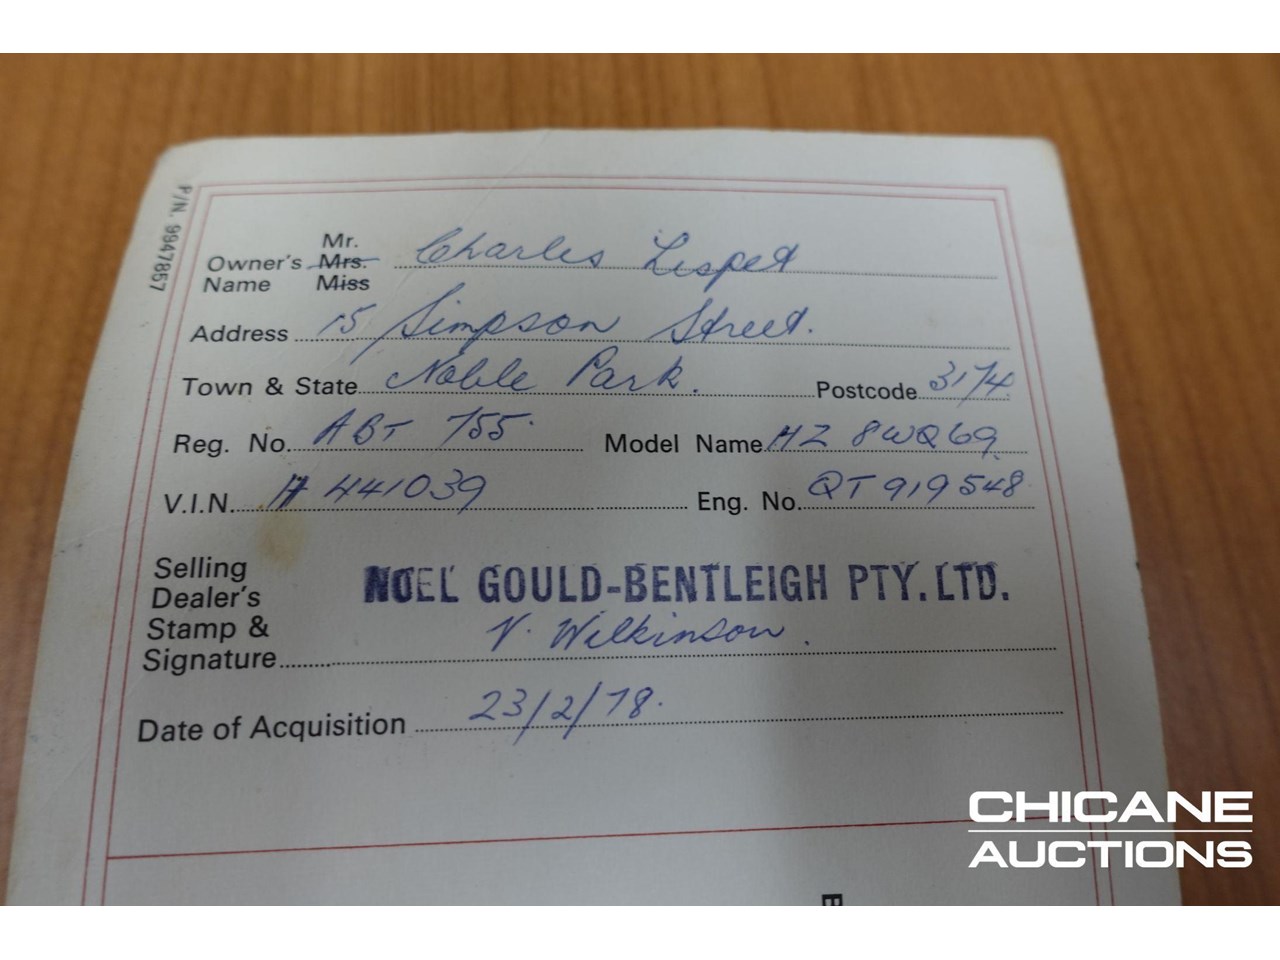 P/N. 9947857
Mr.
Owner's Mrs. Charles Lispet
Name Miss
Address 15 Simpson Street.
Town & State Noble Park. Postcode 3174
Reg. No. ABT 755. Model Name HZ 8WQ69
V.I.N. H 441039 Eng. No. QT919548
Selling
Dealer's NOEL GOULD-BENTLEIGH PTY. LTD.
Stamp & V. Wilkinson.
Signature
Date of Acquisition 23/2/78.
CHICANE
AUCTIONS